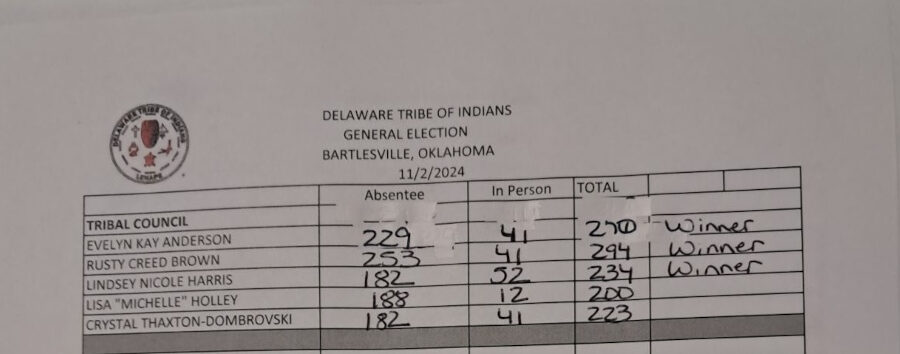 DELAWARE TRIBE OF INDIANS
LENAPE
DELAWARE TRIBE OF INDIANS
GENERAL ELECTION
BARTLESVILLE, OKLAHOMA
11/2/2024
Absentee In Person TOTAL
TRIBAL COUNCIL
EVELYN KAY ANDERSON 229 41 270 Winner
RUSTY CREED BROWN 253 41 294 Winner
LINDSEY NICOLE HARRIS 182 52 234 Winner
LISA "MICHELLE" HOLLEY 188 12 200
CRYSTAL THAXTON-DOMBROVSKI 182 41 223